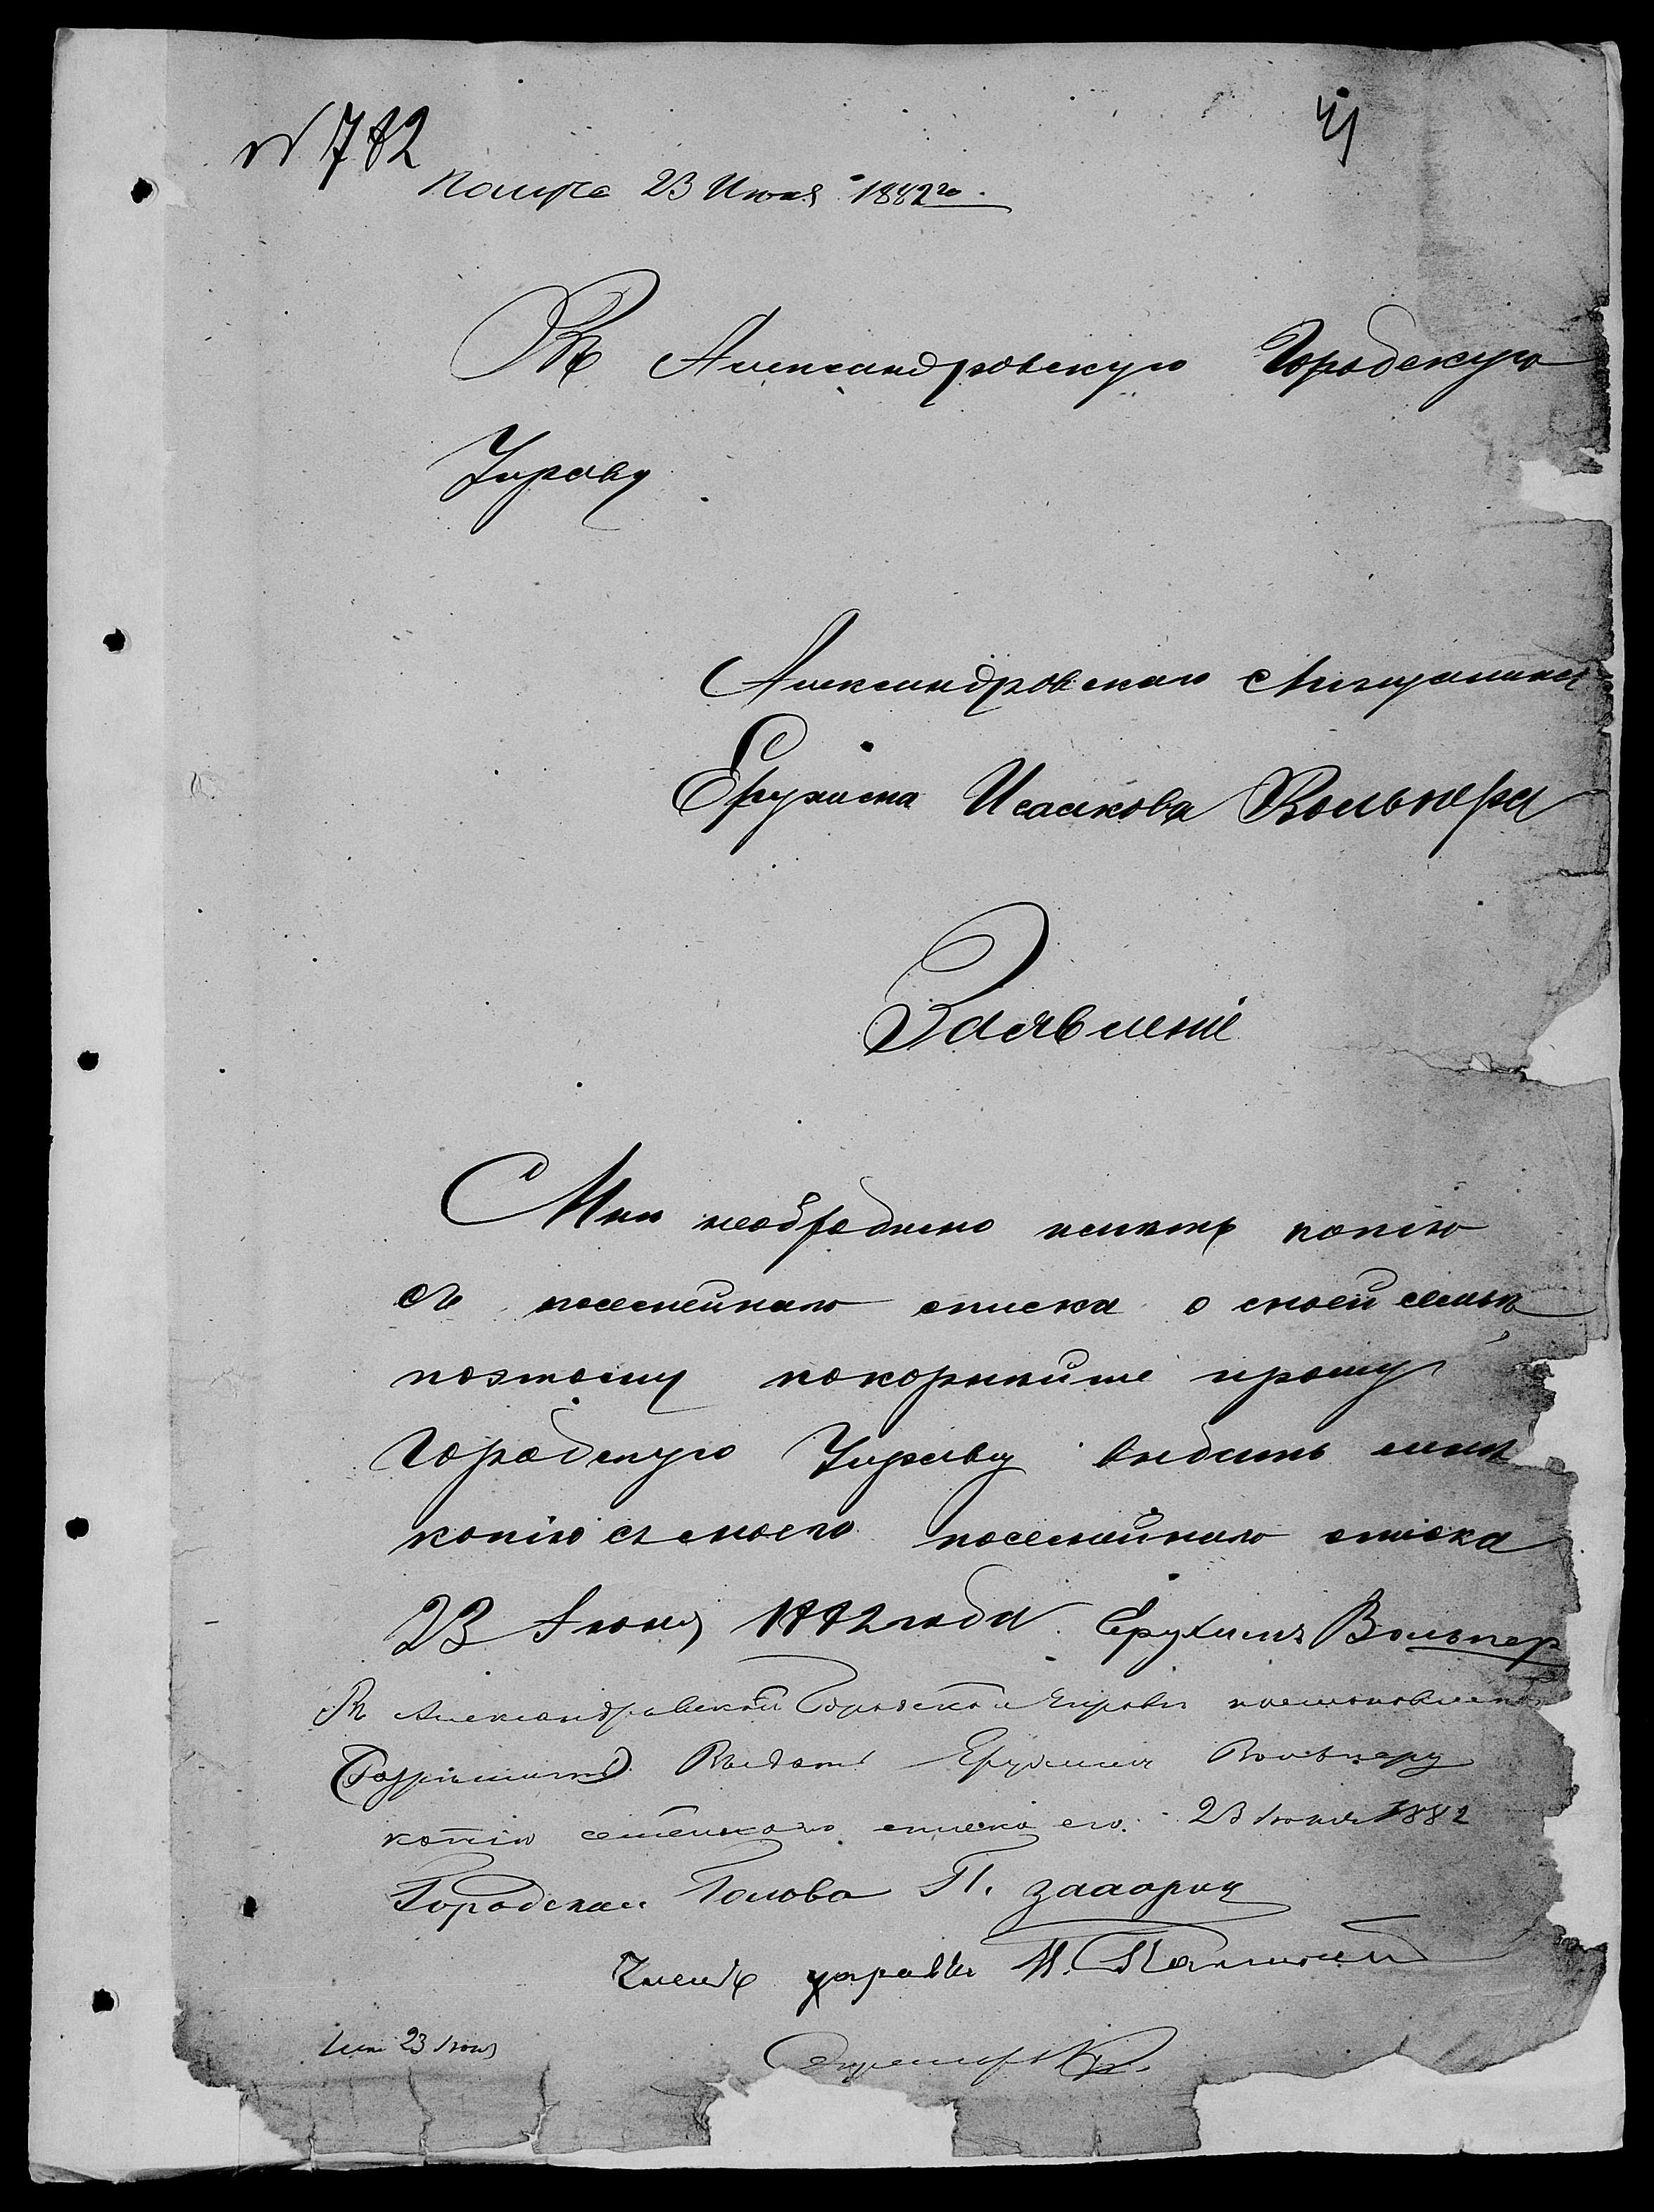 № 782
41
23 Июня 1882 го.
Въ Александровскую Городскую
Управу
Александровскаго Мѣщанина
Ерухима Исаакова Вольпера
Заявленіе
Мнѣ необходимо имѣть копію
съ посемейнаго списка о моей семьѣ,
поэтому покорнѣйше прошу
Городскую Управу выдать мнѣ
копію съ моего посемейнаго списка
23 Іюня 1882 года. Ерухимъ Вольпер
Въ Александровской Городской Управѣ постановлено
Разрѣшить Выдать Ерухиму Вольперу
копію семейнаго списка его. 23 Іюня 1882
Городской Голова П.
Членъ управы
23 Іюня
Секретарь